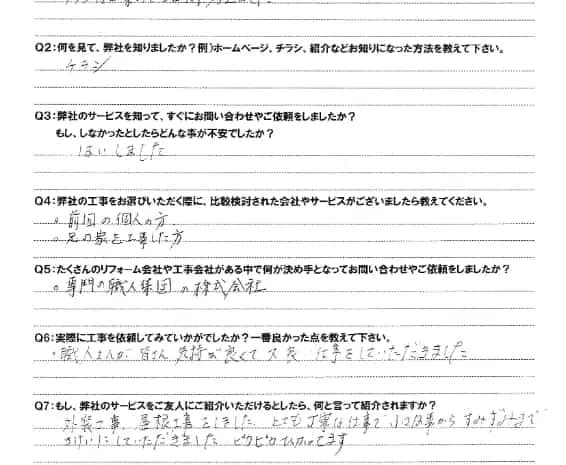 Q2:何を見て、弊社を知りましたか?例)ホームページ、チラシ、紹介などお知りになった方法を教えて下さい。
チラシ
Q3:弊社のサービスを知って、すぐにお問い合わせやご依頼をしましたか?
もし、しなかったとしたらどんな事が不安でしたか?
はいしました
Q4:弊社の工事をお選びいただく際に、比較検討された会社やサービスがございましたら教えてください。
。前回の個人の方
。兄の家を工事した方
Q5:たくさんのリフォーム会社や工事会社がある中で何が決め手となってお問い合わせやご依頼をしましたか?
。専門の職人集団の株式会社
Q6:実際に工事を依頼してみていかがでしたか?一番良かった点を教えて下さい。
・職人さんが皆さん気持が良くて 仕事をしていただきました
Q7:もし、弊社のサービスをご友人にご紹介いただけるとしたら、何と言って紹介されますか?
外装工事、屋根工事をしました とても丁寧な仕事で小さな事からすみずみまで
きれいにしていただきました ピカピカ てます